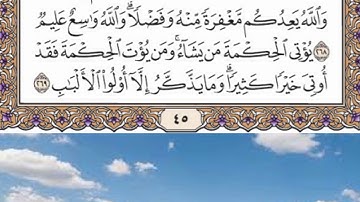 وَٱللَّهُ يَعِدُكُم مَّغْفِرَةً مِّنْهُ وَفَضْلًا ۗ وَٱللَّهُ وَٰسِعٌ عَلِيمٌ
٢٦٨ يُؤْتِى ٱلْحِكْمَةَ مَن يَشَآءُ ۚ وَمَن يُؤْتَ ٱلْحِكْمَةَ فَقَدْ
أُوتِىَ خَيْرًا كَثِيرًا ۗ وَمَا يَذَّكَّرُ إِلَّآ أُو۟لُوا۟ ٱلْأَلْبَٰبِ ٢٦٩
٤٥